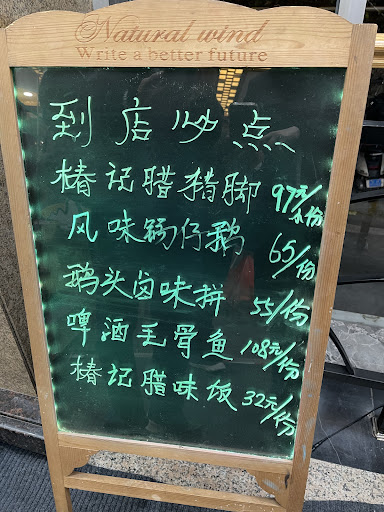 Natural wind
Write a better future
到店必点
椿记腊猪脚 97元/小份
风味锅仔鹅 65/份
鹅头卤味拼 55/份
啤酒毛骨鱼 108元/份
椿记腊味饭 32元/份